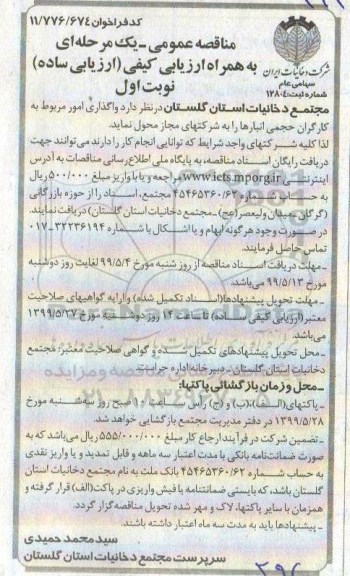 کدفراخوان ۱۱/۷۷۶/۶۷۴
مناقصه عمومی - یک مرحله‌ای
به همراه ارزیابی کیفی (ارزیابی ساده)
نوبت اول
شرکت دخانیات ایران
سهامی عام
شماره ثبت: ۱۲۸۰۴
مجتمع دخانیات استان گلستان در نظر دارد واگذاری امور مربوط به
کارگران حجمی انبارها را به شرکتهای مجاز محول نماید.
لذا کلیه شرکتهای واجد شرایط که توانایی انجام کار را دارند می‌توانند جهت
دریافت رایگان اسناد مناقصه، به پایگاه ملی اطلاع رسانی مناقصات به آدرس
اینترنتی www.iets.mporg.ir مراجعه و یا با واریز مبلغ ۵۰۰/۰۰۰ ریال
به حساب شماره ۴۵۴۶۵۳۶۰/۶۲ مجتمع، اسناد را از حوزه بازرگانی
(گرگان-میدان ولیعصر(عج)-مجتمع دخانیات استان گلستان) دریافت نمایند.
در صورت وجود هرگونه ابهام و یا اشکال با شماره ۳۲۲۳۶۱۹۴-۰۱۷
تماس حاصل فرمایند.
- مهلت دریافت اسناد مناقصه از روز شنبه مورخ ۹۹/۵/۴ لغایت روز دوشنبه
مورخ ۹۹/۵/۱۳ می‌باشد.
- مهلت تحویل پیشنهادها(اسناد تکمیل شده) و ارایه گواهیهای صلاحیت
معتبر (ارزیابی کیفی ساده) تا ساعت ۱۴ روز دوشنبه مورخ ۱۳۹۹/۵/۲۷
می‌باشد.
- محل تحویل پیشنهادهای تکمیل شده و گواهی صلاحیت معتبر: مجتمع
دخانیات استان گلستان - دبیرخانه اداره حراست
- محل و زمان بازگشائی پاکتها:
- پاکتهای(الف)،(ب) و (ج) رأس ساعت ۱۰ صبح روز سه‌شنبه مورخ
۱۳۹۹/۵/۲۸ در دفتر مدیریت مجتمع بازگشایی خواهد شد.
- تضمین شرکت در فرآیند ارجاع کار مبلغ ۵۵۵/۰۰۰/۰۰۰ ریال می‌باشد که به
صورت ضمانتنامه بانکی با مدت اعتبار سه ماهه و قابل تمدید و یا واریز نقدی
به حساب شماره ۴۵۴۶۵۳۶۰/۶۲ بانک ملت به نام مجتمع دخانیات استان
گلستان باشد، که بایستی ضمانتنامه یا فیش واریزی در پاکت(الف) قرار گرفته و
همزمان با سایر پاکتها، لاک و مهر شده تحویل مناقصه‌گزار گردد.
- پیشنهادها باید به مدت سه ماه اعتبار داشته باشند.
سید محمد حمیدی
سرپرست مجتمع دخانیات استان گلستان